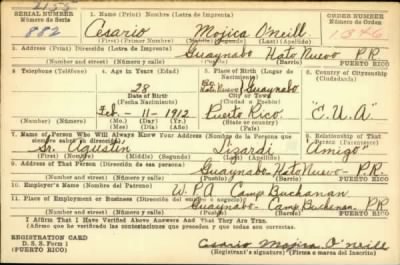 2155
SERIAL NUMBER
1. Name (Print) Nombre (Letra de Imprenta)
ORDER NUMBER
Número de Serie
Número de Orden
882
Cesario Mojica O'neill
1346
(First) (Primer Nombre) (Middle) (Segundo) (Last) (Apellido)
2. Address (Print) Dirección (Letra de Imprenta)
Guaynabo Hato Nuevo P.R.
(Number and street) (Número y calle) (Town) (Pueblo) (Barrio) PUERTO RICO
3. Telephone (Teléfono)
4. Age in Years (Edad)
5. Place of Birth (Lugar de Nacimiento)
6. Country of Citizenship (Ciudadanía)
28
Hato Nuevo Guaynabo
Date of Birth
City or Town
(Fecha Nacimiento)
(Ciudad o Pueblo)
Feb. - 11 - 1912
Puerto Rico.
"E.U.A"
(Mo.) (Day) (Yr.)
(State or country)
(Mes) (Día) (Año)
(Estado o país)
7. Name of Person Who Will Always Know Your Address (Nombre de la Persona que siempre sabrá su dirección)
8. Relationship of That Person (Parentesco)
Sr. Agustin Lizardi
Amigo
(First) (Primero) (Middle) (Segundo) (Last) (Apellido)
9. Address of That Person (Dirección de esa persona)
Guaynabo Hato Nuevo - P.R.
(Number and street) (Número y calle) (Town) (Pueblo) (Barrio) PUERTO RICO
10. Employer's Name (Nombre del Patrono)
W.P.A. Camp Buchanan
11. Place of Employment or Business (Dirección del empleo)
Guaynabo - Camp Buchanan P.R
(Number and street) (Número y calle) (Town) (Pueblo) (Barrio) PUERTO RICO
I Affirm That I Have Verified Above Answers And That They Are True.
(Afirmo que he verificado las contestaciones que preceden y que son ciertas.)
REGISTRATION CARD
D. S. S. Form 1
(PUERTO RICO)
Cesario Mojica O'neill
(Registrant's signature) (Firma o marca del Inscrito)